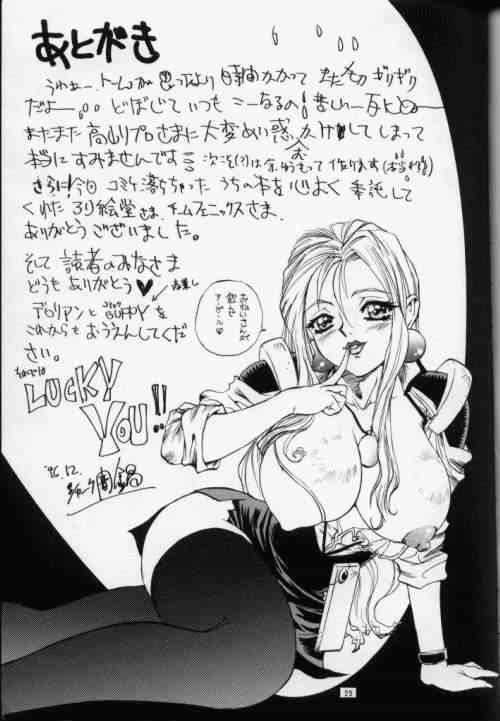 あとがき
うわぁー、トームが思ったより時間かかって
だよー
どばじて いつも こーなるの! 苦しい
またまた 高山プロさまに 大変めい惑おかけしてしまって
本当に すみませんです
次こそ(?)は 余ゆうもって 作ります
さらに! 今回 コミケ落ちちゃった うちの本を 心よく 委託して
くれた ろり絵堂さま、チームフェニックスさま、
ありがとう ございました。
そして 読者のみなさま
どうも ありがとう♥
デロリアンと をこれからも おうえんしてくだ
さい。
それでは
LUCKY
YOU!!
'96.12.
おねいさんが
アピール♡
25